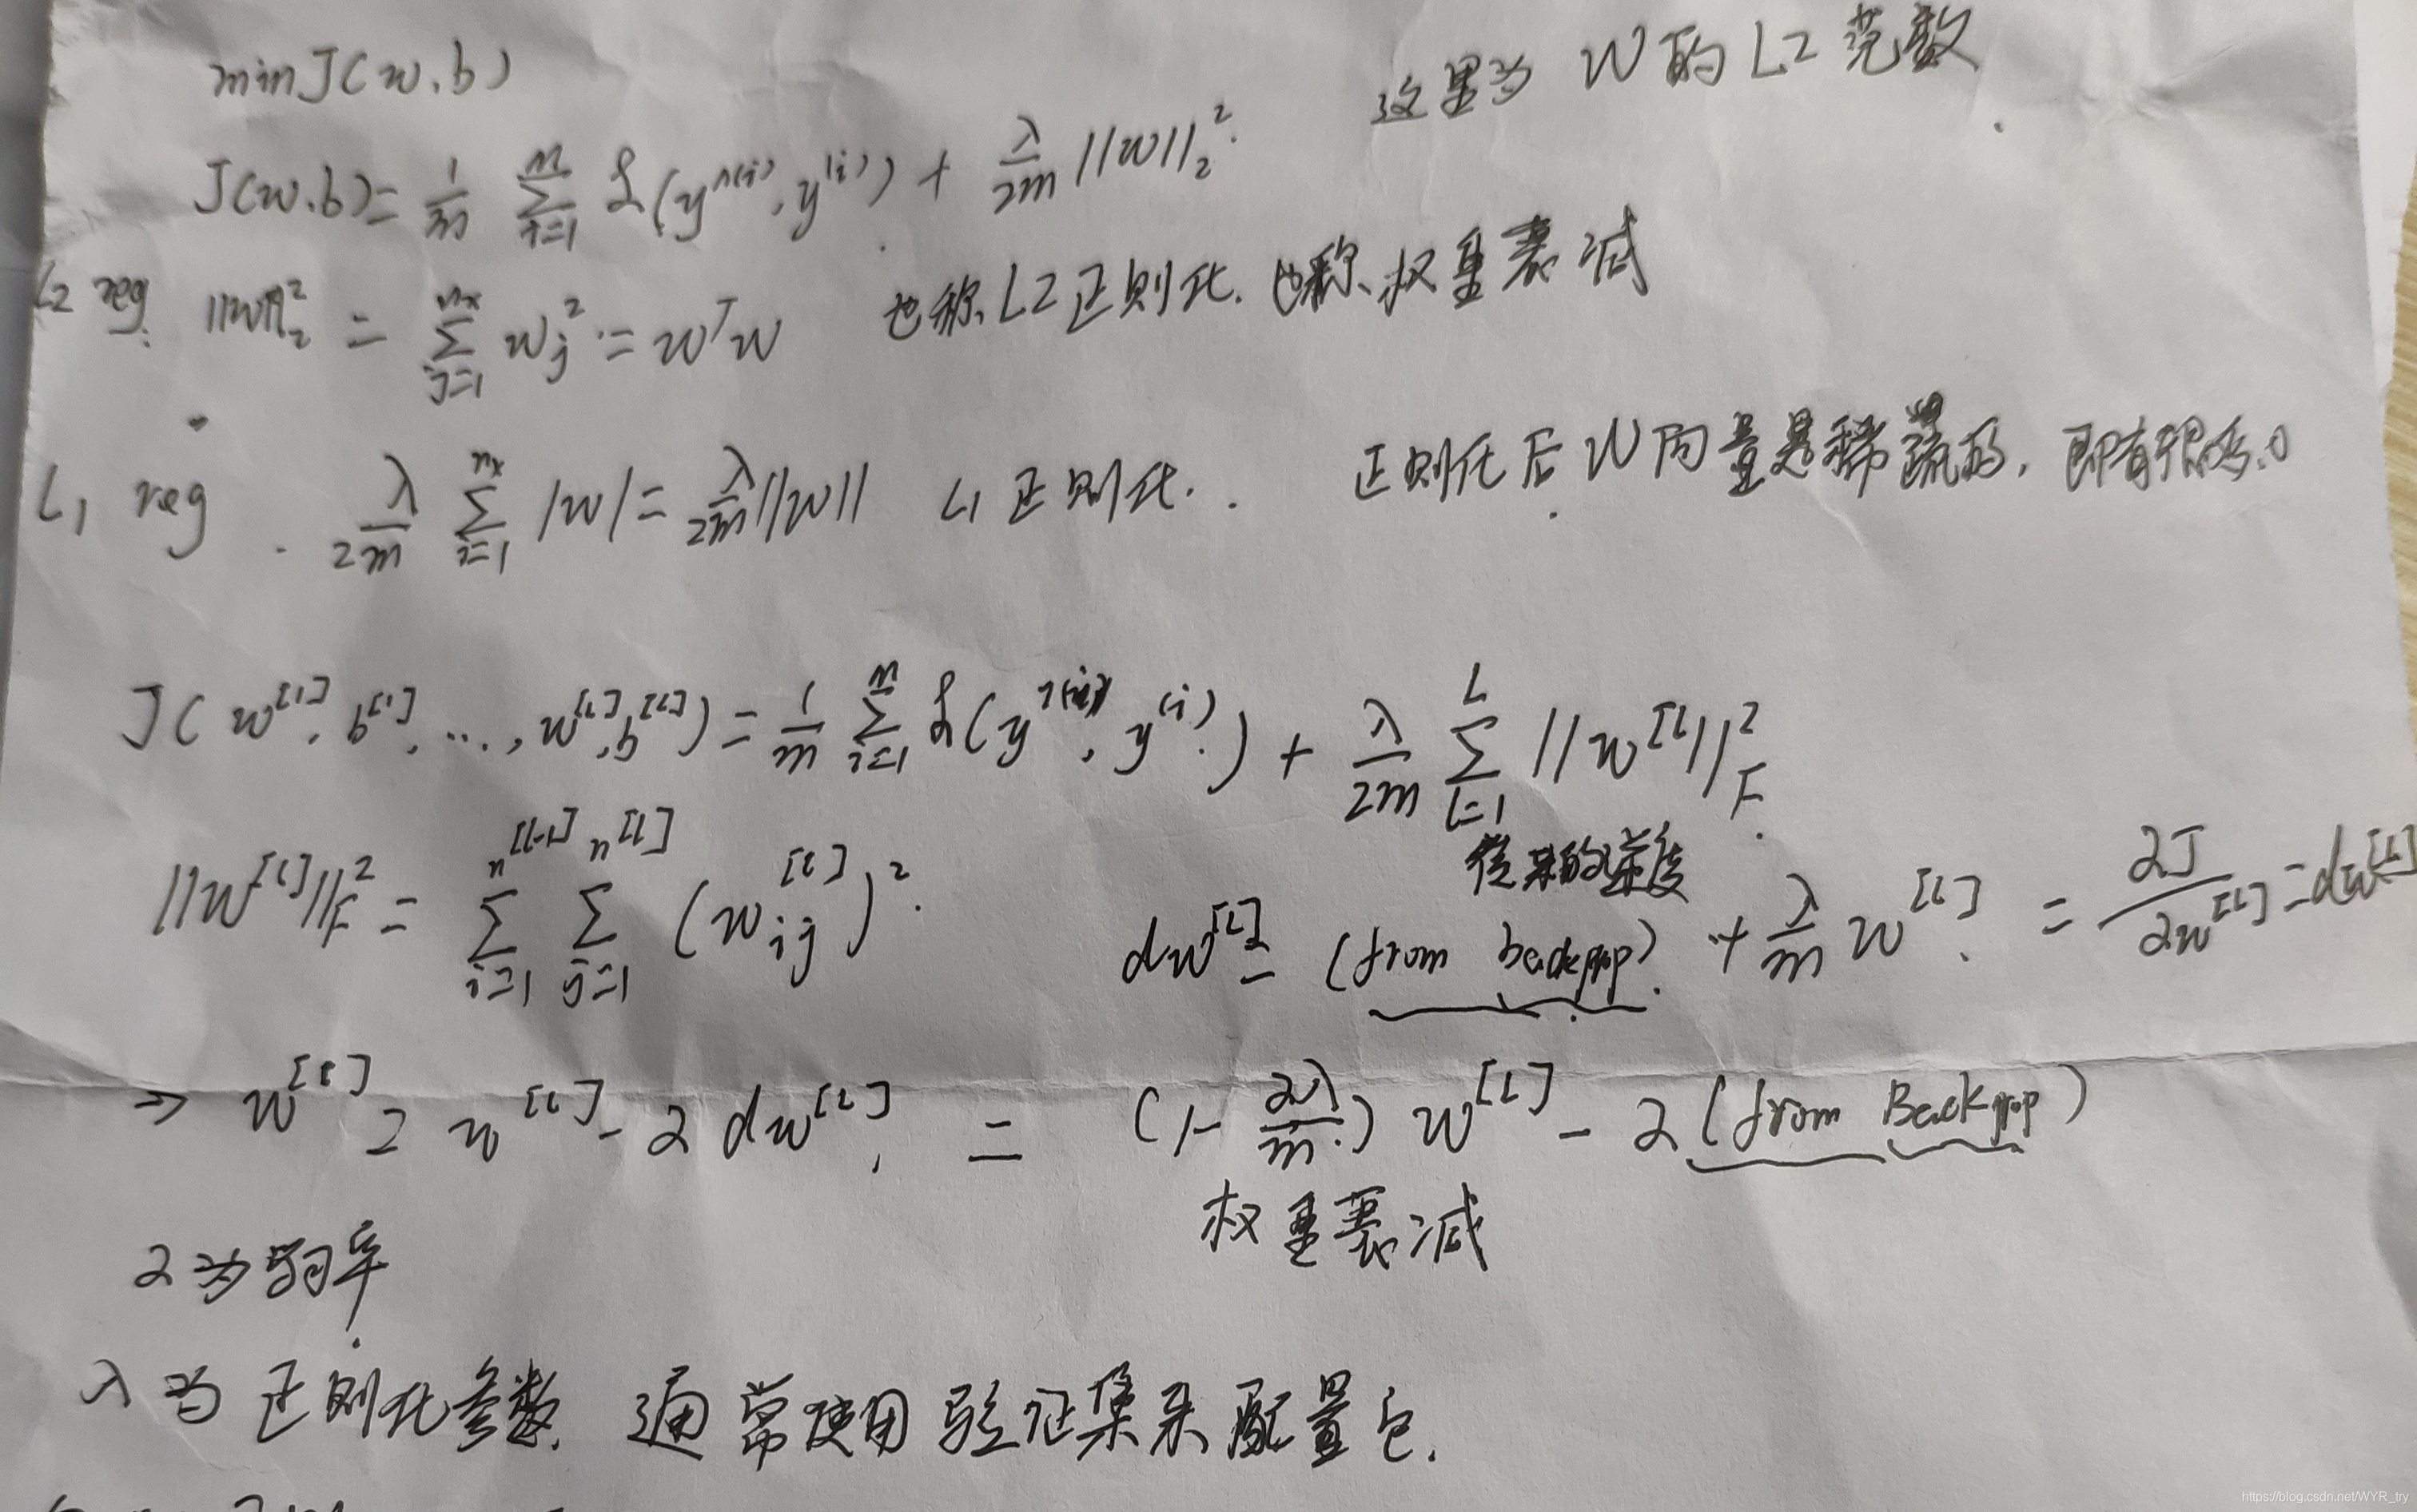 min J(w,b)
这里为 W 的 L2 范数
J(w,b) = 1/m ∑_{i=1}^{m} ℒ(y^{∧(i)}, y^{(i)}) + λ/2m ||w||_2^2
L2 reg. ||w||_2^2 = ∑_{j=1}^{nx} w_j^2 = w^T w 也称 L2 正则化. 也称、权重衰减
L1 reg. λ/2m ∑_{i=1}^{nx} |w| = λ/2m ||w|| L1 正则化. 正则化后 W 向量是稀疏的, 即有很多 0
J(w^{[1]}, b^{[1]}, ..., w^{[L]}, b^{[L]}) = 1/m ∑_{i=1}^{m} ℒ(y^{∧(i)}, y^{(i)}) + λ/2m ∑_{l=1}^{L} ||w^{[l]}||_F^2
||w^{[l]}||_F^2 = ∑_{i=1}^{n^{[l-1]}} ∑_{j=1}^{n^{[l]}} (w_{ij}^{[l]})^2.
的梯度
dw^{[l]} = (from backprop) + λ/m w^{[l]} = ∂J/∂w^{[l]} = dw^{[l]}
⇒ w^{[l]} = w^{[l]} - α dw^{[l]} = (1 - αλ/m) w^{[l]} - α (from Backprop)
权重衰减
α 为 率
λ 为 正则化参数. 通常使用验证集来配置它.
https://blog.csdn.net/WYR_try